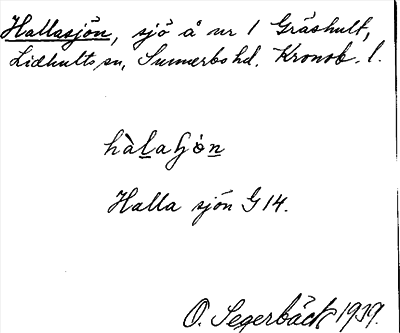 Hallasjön, sjö å nr 1 Gräshult,
Lidhults sn, Sunnerbo hd. Kronob. l.
Halla sjön G 14.
O. Segerbäck 1939.